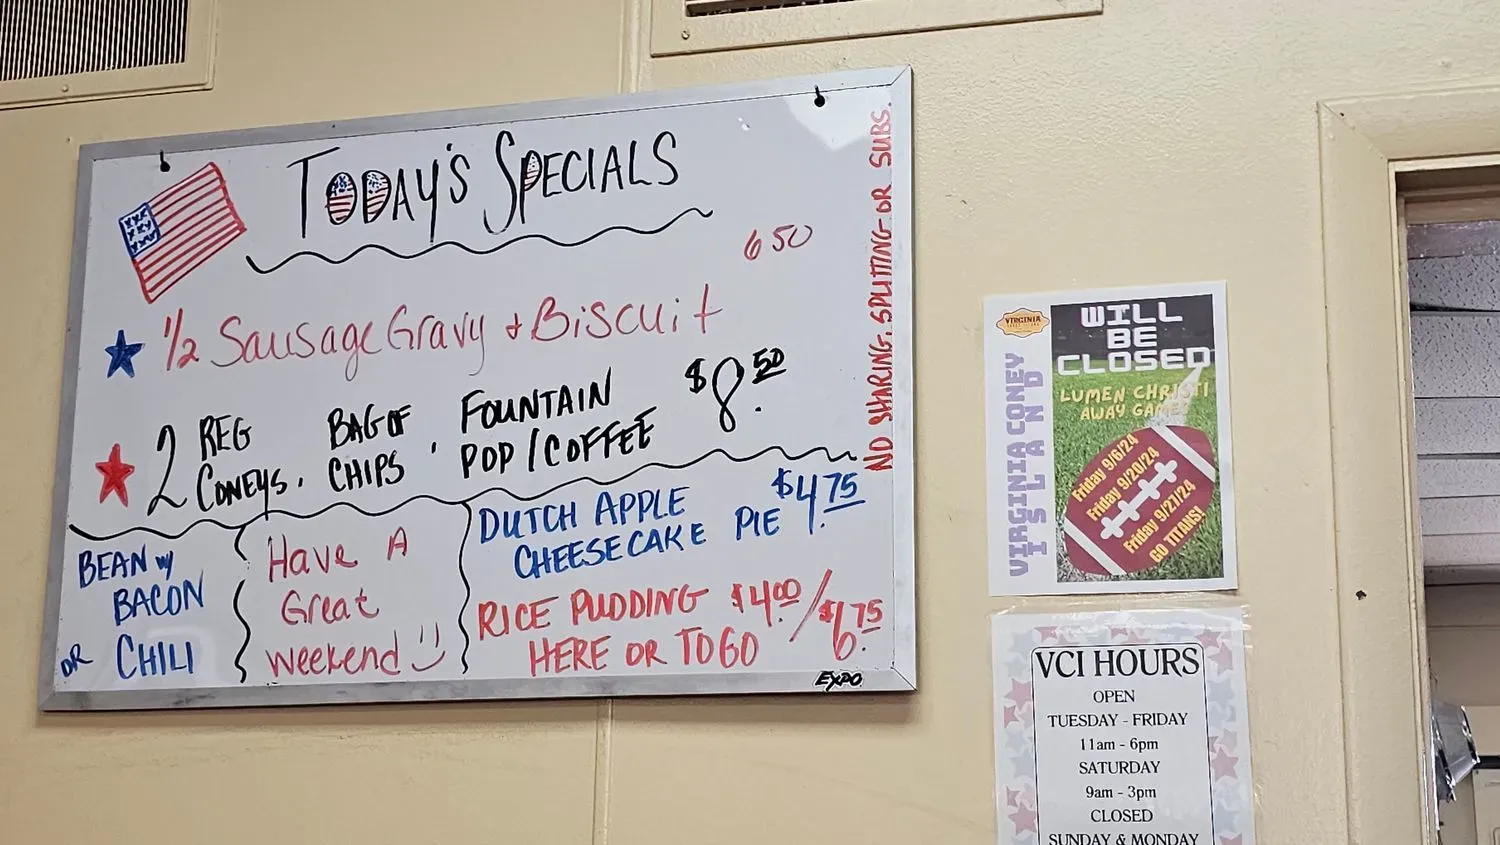 TODAY'S SPECIALS
6 50
1/2 Sausage Gravy + Biscuit
2 REG CONEYS, BAG OF CHIPS, FOUNTAIN POP/COFFEE $8.50
NO SHARING, SPLITTING OR SUBS.
BEAN w/
BACON
OR CHILI
Have A
Great
weekend
DUTCH APPLE
CHEESECAKE PIE $4.75
RICE PUDDING $4.00/$6.75
HERE OR TO GO
EXPO
VIRGINIA
VIRGINIA CONEY
ISLAND
WILL
BE
CLOSED
LUMEN CHRISTI
AWAY GAMES
Friday 9/6/24
Friday 9/20/24
Friday 9/27/24
GO TITANS!
VCI HOURS
OPEN
TUESDAY - FRIDAY
11am - 6pm
SATURDAY
9am - 3pm
CLOSED
SUNDAY & MONDAY